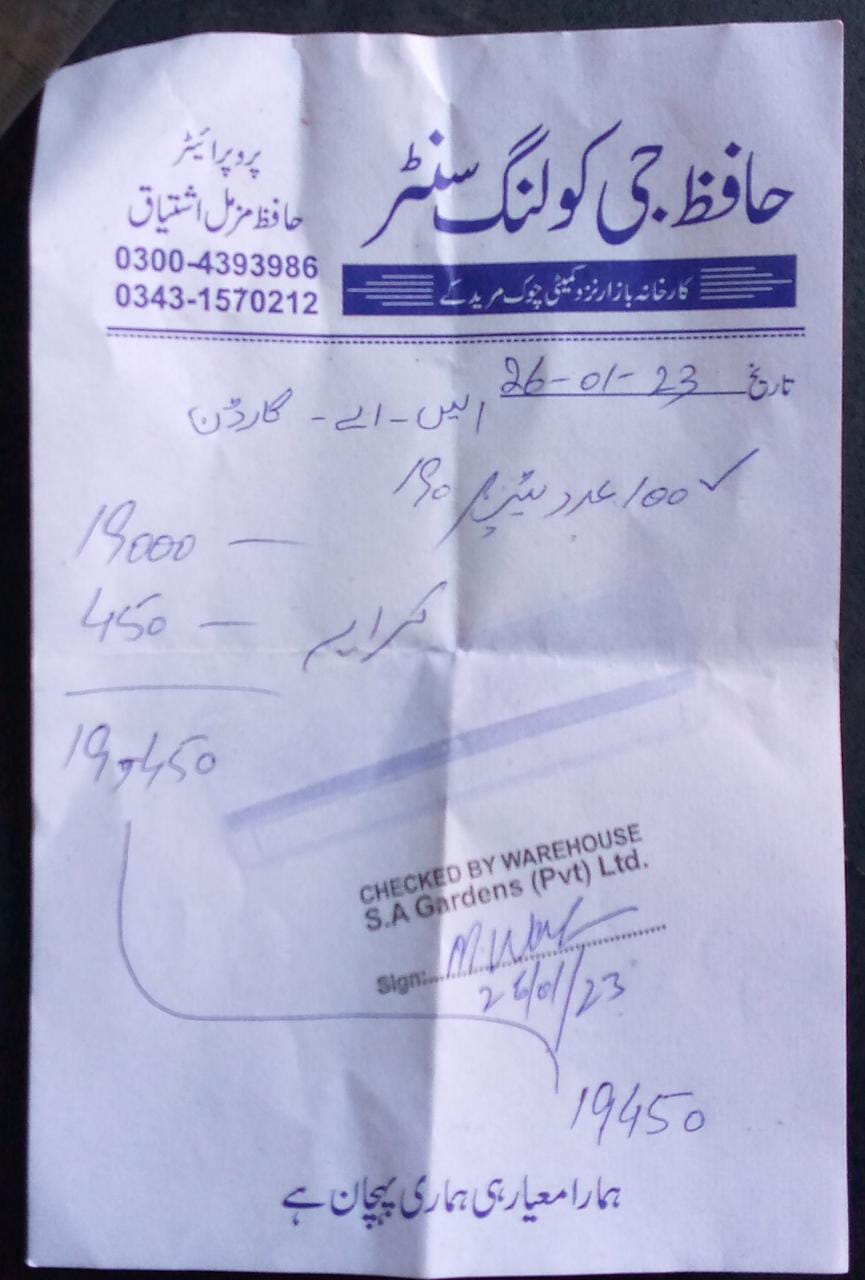 حافظ جی کولنگ سنٹر
کارخانہ بازار نزد کمیٹی چوک مریدکے
پروپرائیٹر
حافظ مزمل اشتیاق
0300-4393986
0343-1570212
تاریخ 26-01-23
ایس-اے-گارڈن
100 عدد 190
19000 —
کرایہ — 450
19,450
CHECKED BY WAREHOUSE
S.A Gardens (Pvt) Ltd.
Sign:
26/01/23
19450
ہمارا معیار ہی ہماری پہچان ہے